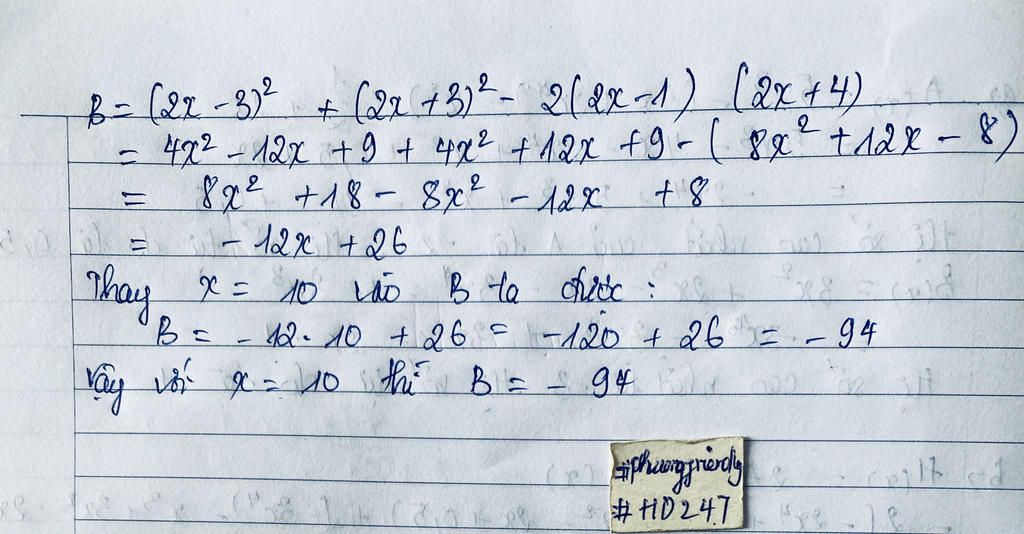 B = (2x - 3)² + (2x + 3)² - 2(2x - 1) (2x + 4)
= 4x² - 12x + 9 + 4x² + 12x + 9 - (8x² + 12x - 8)
= 8x² + 18 - 8x² - 12x + 8
= - 12x + 26
Thay x = 10 vào B ta được :
B = - 12 . 10 + 26 = -120 + 26 = - 94
Vậy với x = 10 thì B = - 94
#phuongfriendly
#HD247